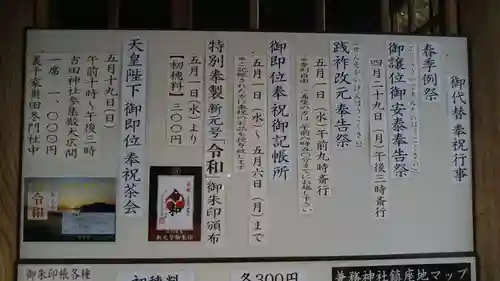 御代替奉祝行事
春季例祭
御譲位御安泰奉告祭
四月二十九日(月)午後三時斎行
践祚改元奉告祭
五月一日(水)午前九時斎行
御即位奉祝御記帳所
五月一日(水)～五月六日(月)まで
特別奉製新元号「令和」御朱印頒布
五月一日(水)より
【初穂料】三〇〇円
天皇陛下御即位奉祝茶会
五月十九日(日)
午前十時～午後二時
吉田神社参集殿大広間
一席 一、〇〇〇円
令和
令和
御朱印帳各種
初穂料
各300円
兼務神社鎮座地マップ